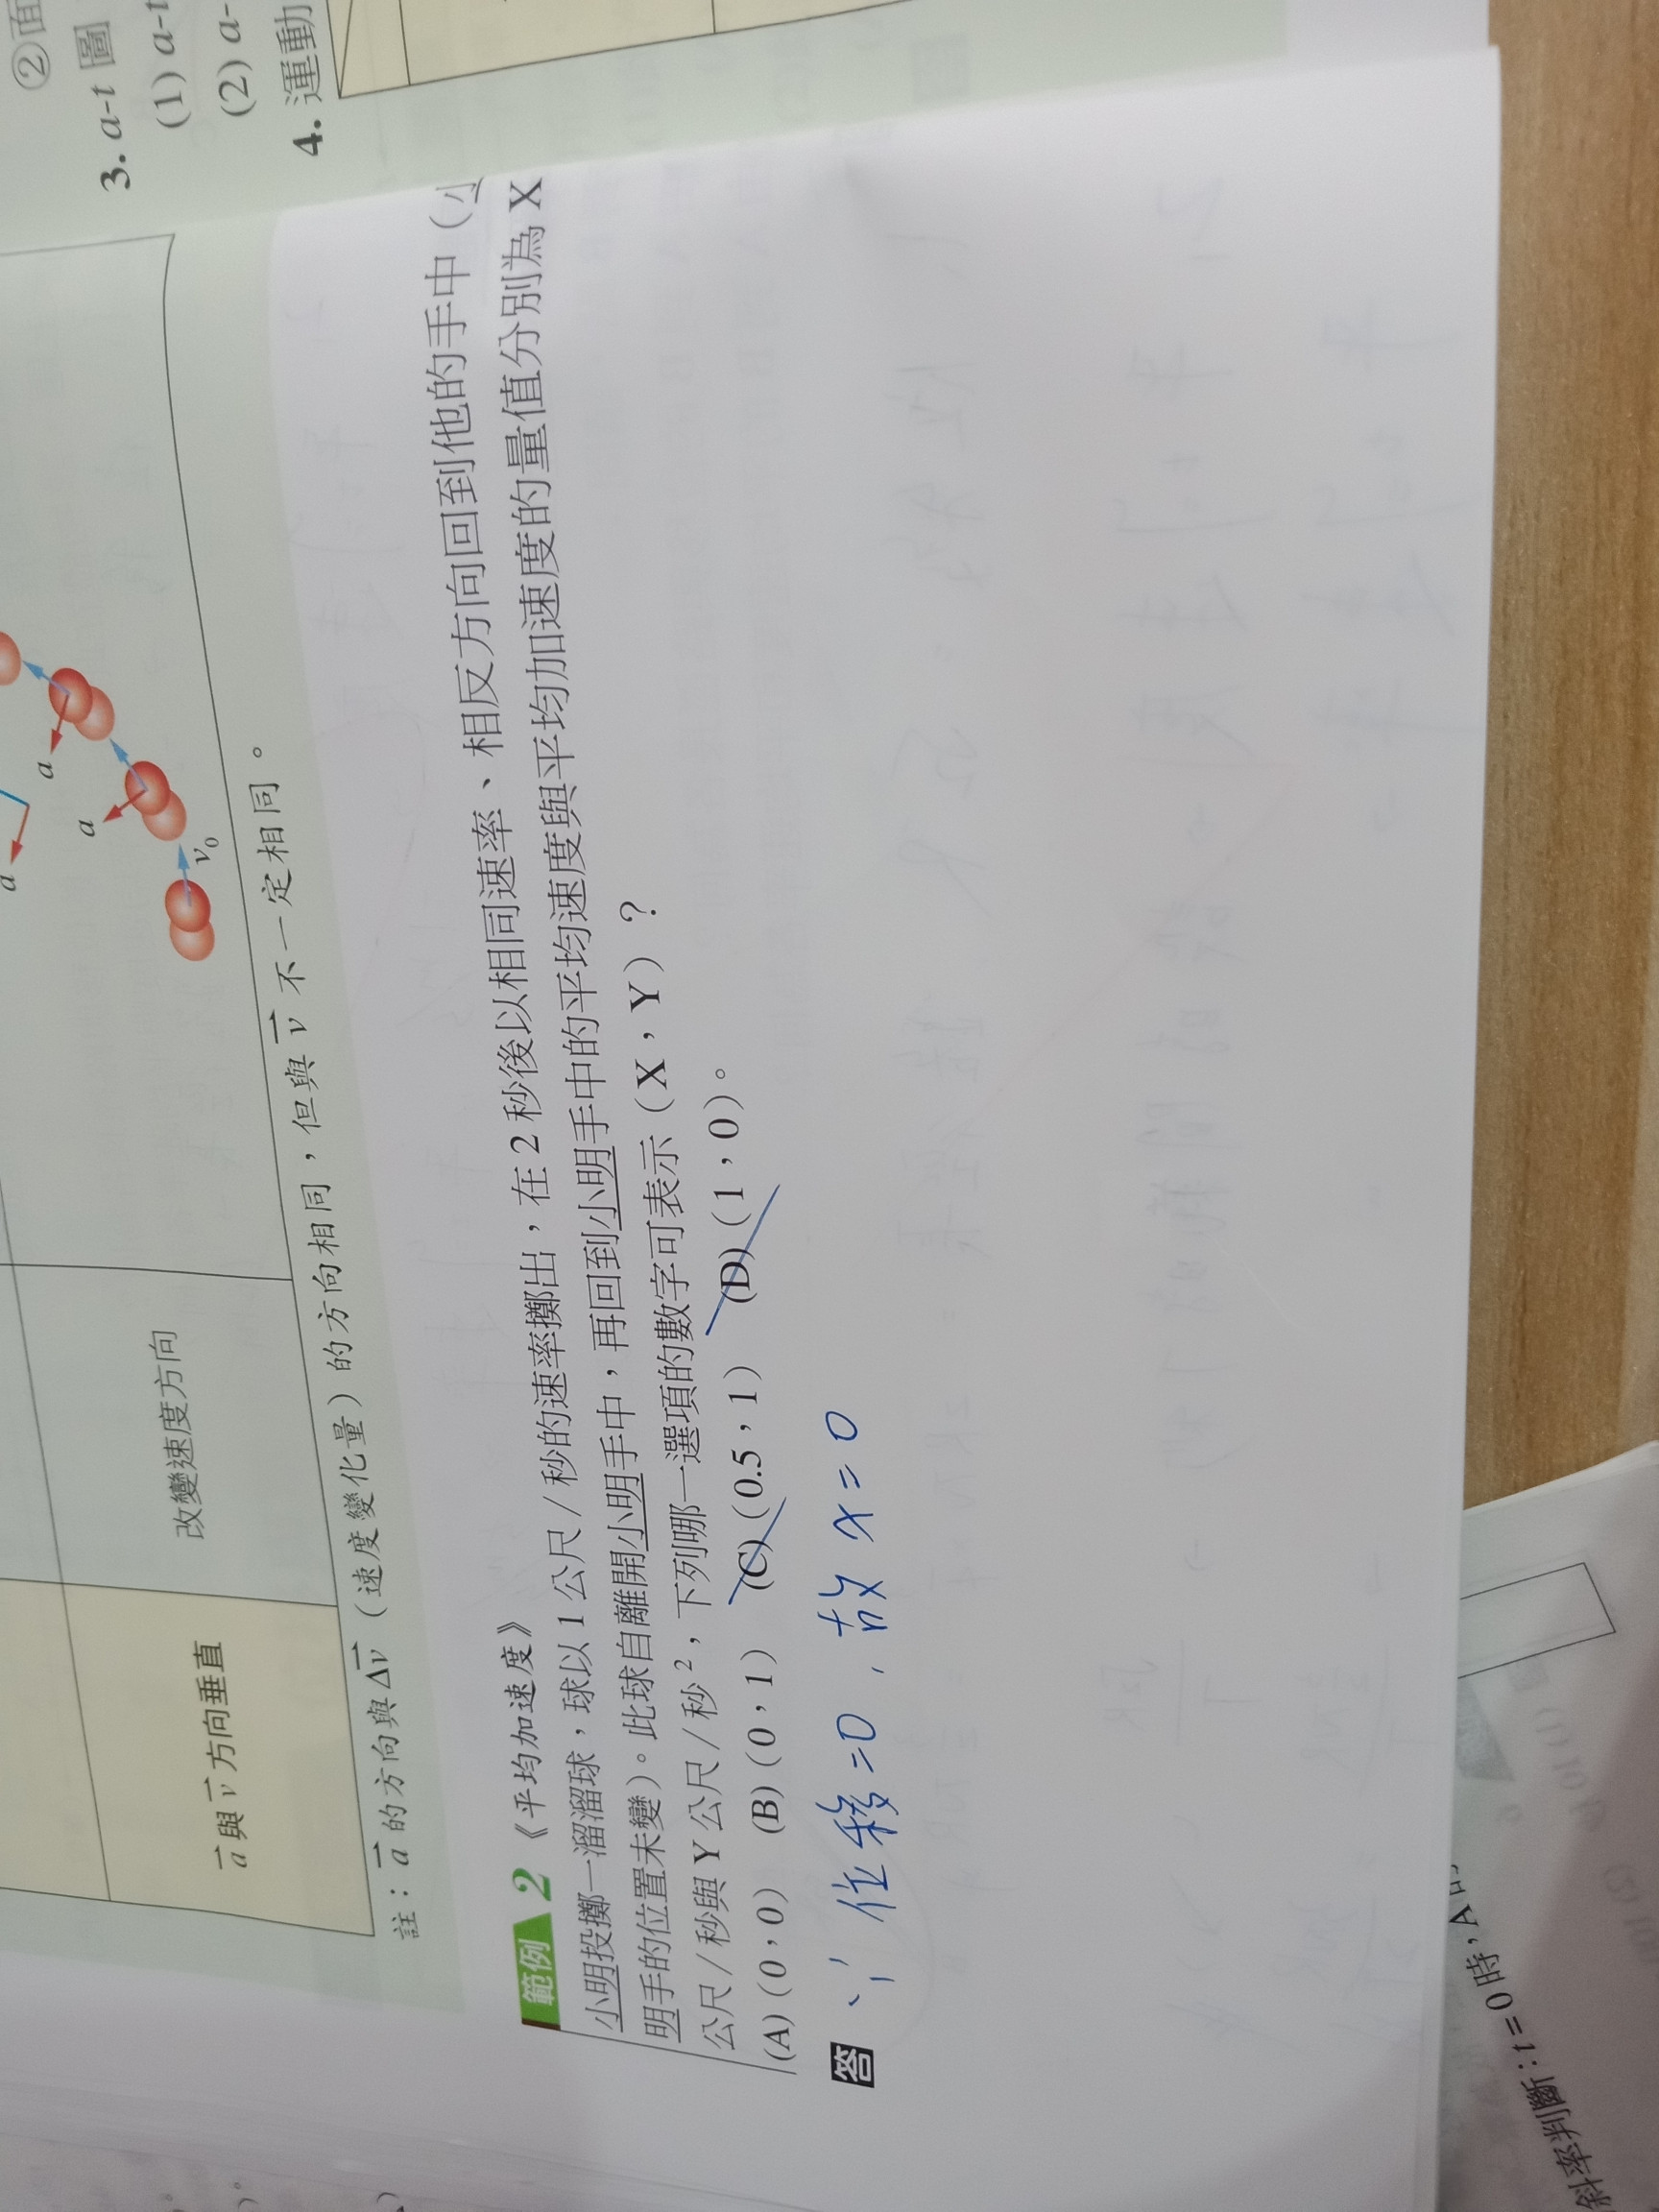 ②面
3. a-t 圖
(1) a-t
(2) a-
4. 運動
a
a
a
v₀
改變速度方向
a⃗ 與 v⃗ 方向垂直
註：a⃗ 的方向與 Δv⃗（速度變化量）的方向相同，但與 v⃗ 不一定相同。
範例 2 《平均加速度》
小明投擲一溜溜球，球以 1 公尺／秒的速率擲出，在 2 秒後以相同速率、相反方向回到他的手中（小
明手的位置未變）。此球自離開小明手中，再回到小明手中的平均速度與平均加速度的量值分別為 X
公尺／秒與 Y 公尺／秒²，下列哪一選項的數字可表示（X，Y）？
(A)（0，0） (B)（0，1） (C)（0.5，1） (D)（1，0）。
答
∵位移=0，故 x=0
斜率判斷：t = 0 時，A 的